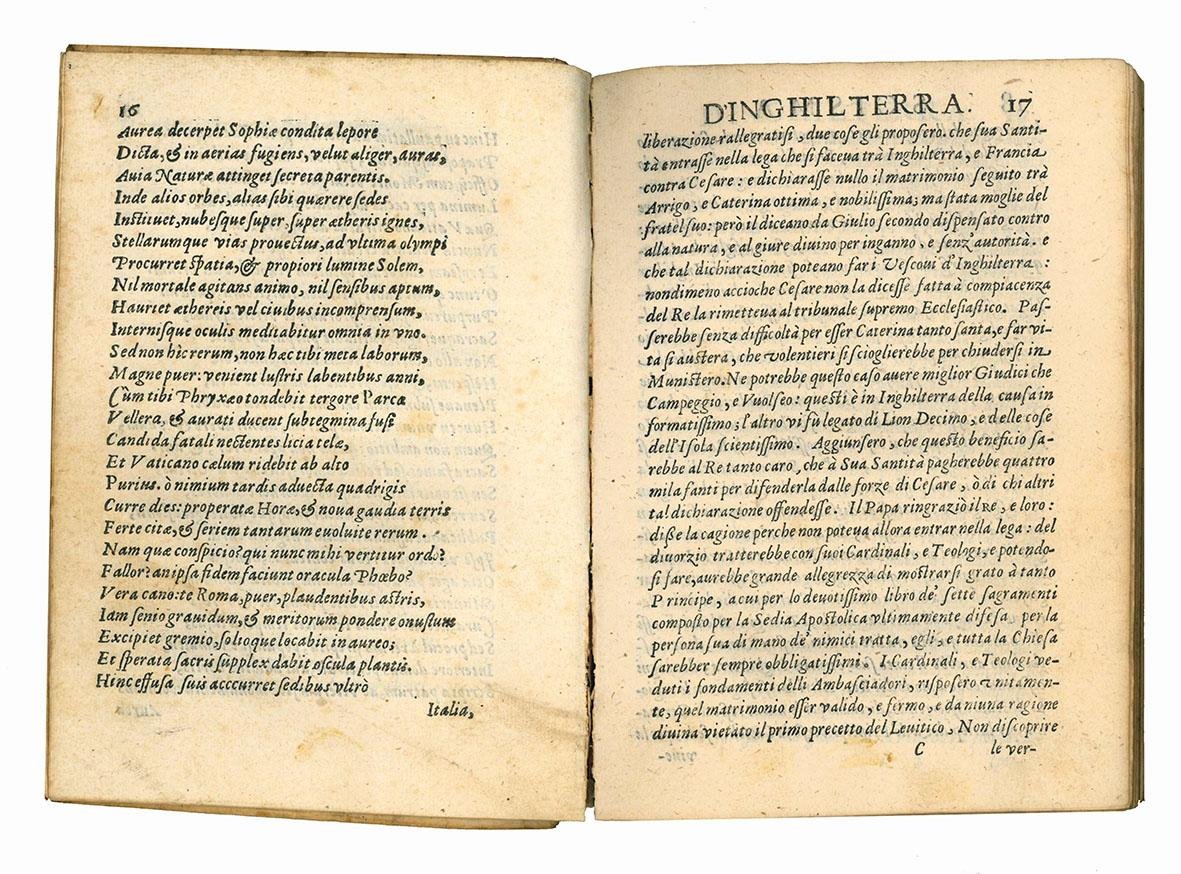 16
Aurea decerpet Sophiæ condita lepore
Dicta, & in aerias fugiens, velut aliger, auras,
Auia Naturæ attinget secreta parentis.
Inde alios orbes, alias sibi quærere sedes
Instituet, nubesque super, super ætheris ignes,
Stellarumque vias prouectus, ad vltima olympi
Procurret spatia, & propiori lumine Solem,
Nil mortale agitans animo, nil sensibus aptum,
Hauriet æthereis vel ciuibus incomprensum,
Internisque oculis meditabitur omnia in vno.
Sed non hìc rerum, non hæc tibi meta laborum,
Magne puer: venient lustris labentibus anni,
Cùm tibi Phryxæo tondebit tergore Parca
Vellera, & aurati ducent subtegmina fusi
Candida fatali nectentes licia telæ,
Et Vaticano cælum ridebit ab alto
Purius. ò nimium tardis aduecta quadrigis
Curre dies: properatæ Horæ, & noua gaudia terris
Ferte citæ, & seriem tantarum euoluite rerum.
Nam quæ conspicio? qui nunc mihi vertitur ordo?
Fallor? an ipsa fidem faciunt oracula Phœbo?
Vera cano: te Roma, puer, plaudentibus astris,
Iam senio grauidum, & meritorum pondere onustum
Excipiet gremio, solioque locabit in aureo;
Et sperata sacris supplex dabit oscula plantis.
Hinc effusa suis acccurret sedibus vltrò
Italia,
D'INGHILTERRA. 17
liberazione rallegratisi, due cose gli proposero. che sua Santi-
tà entrasse nella lega che si faceua trà Inghilterra, e Francia
contra Cesare: e dichiarasse nullo il matrimonio seguito trà
Arrigo, e Caterina ottima, e nobilissima; ma stata moglie del
fratel suo: però il diceano da Giulio secondo dispensato contro
alla natura, e al giure diuino per inganno, e senz' autorità. e
che tal dichiarazione poteano far i Vescoui d'Inghilterra:
nondimeno accioche Cesare non la dicesse fatta à compiacenza
del Re la rimetteua al tribunale supremo Ecclesiastico. Pas-
serebbe senza difficoltà per esser Caterina tanto santa, e far vi-
ta sì austera, che volentieri si scioglierebbe per chiudersi in
Munistero. Ne potrebbe questo caso auere miglior Giudici che
Campeggio, e Vuolseo: questi è in Inghilterra della causa in
formatissimo; l'altro vi fù legato di Lion Decimo, e delle cose
dell'Isola scientissimo. Aggiunsero, che questo beneficio sa-
rebbe al Re tanto caro, che à Sua Santità pagherebbe quattro
mila fanti per difenderla dalle forze di Cesare, ò di chi altri
tal dichiarazione offendesse. Il Papa ringraziò il re, e loro:
disse la cagione perche non poteua allora entrar nella lega: del
diuorzio tratterebbe con suoi Cardinali, e Teologi, e potendo-
si fare, aurebbe grande allegrezza di mostrarsi grato à tanto
Principe, a cui per lo deuotissimo libro de' sette sagramenti
composto per la Sedia Apostolica vltimamente difesa, per la
persona sua di mano de' nimici tratta, egli, e tutta la Chiesa
sarebber sempre obbligatissimi. I Cardinali, e Teologi ve-
duti i fondamenti delli Ambasciadori, risposero vnitamen-
te, quel matrimonio esser valido, e fermo, e da niuna ragione
diuina vietato il primo precetto del Leuitico, Non discoprire
C le ver-